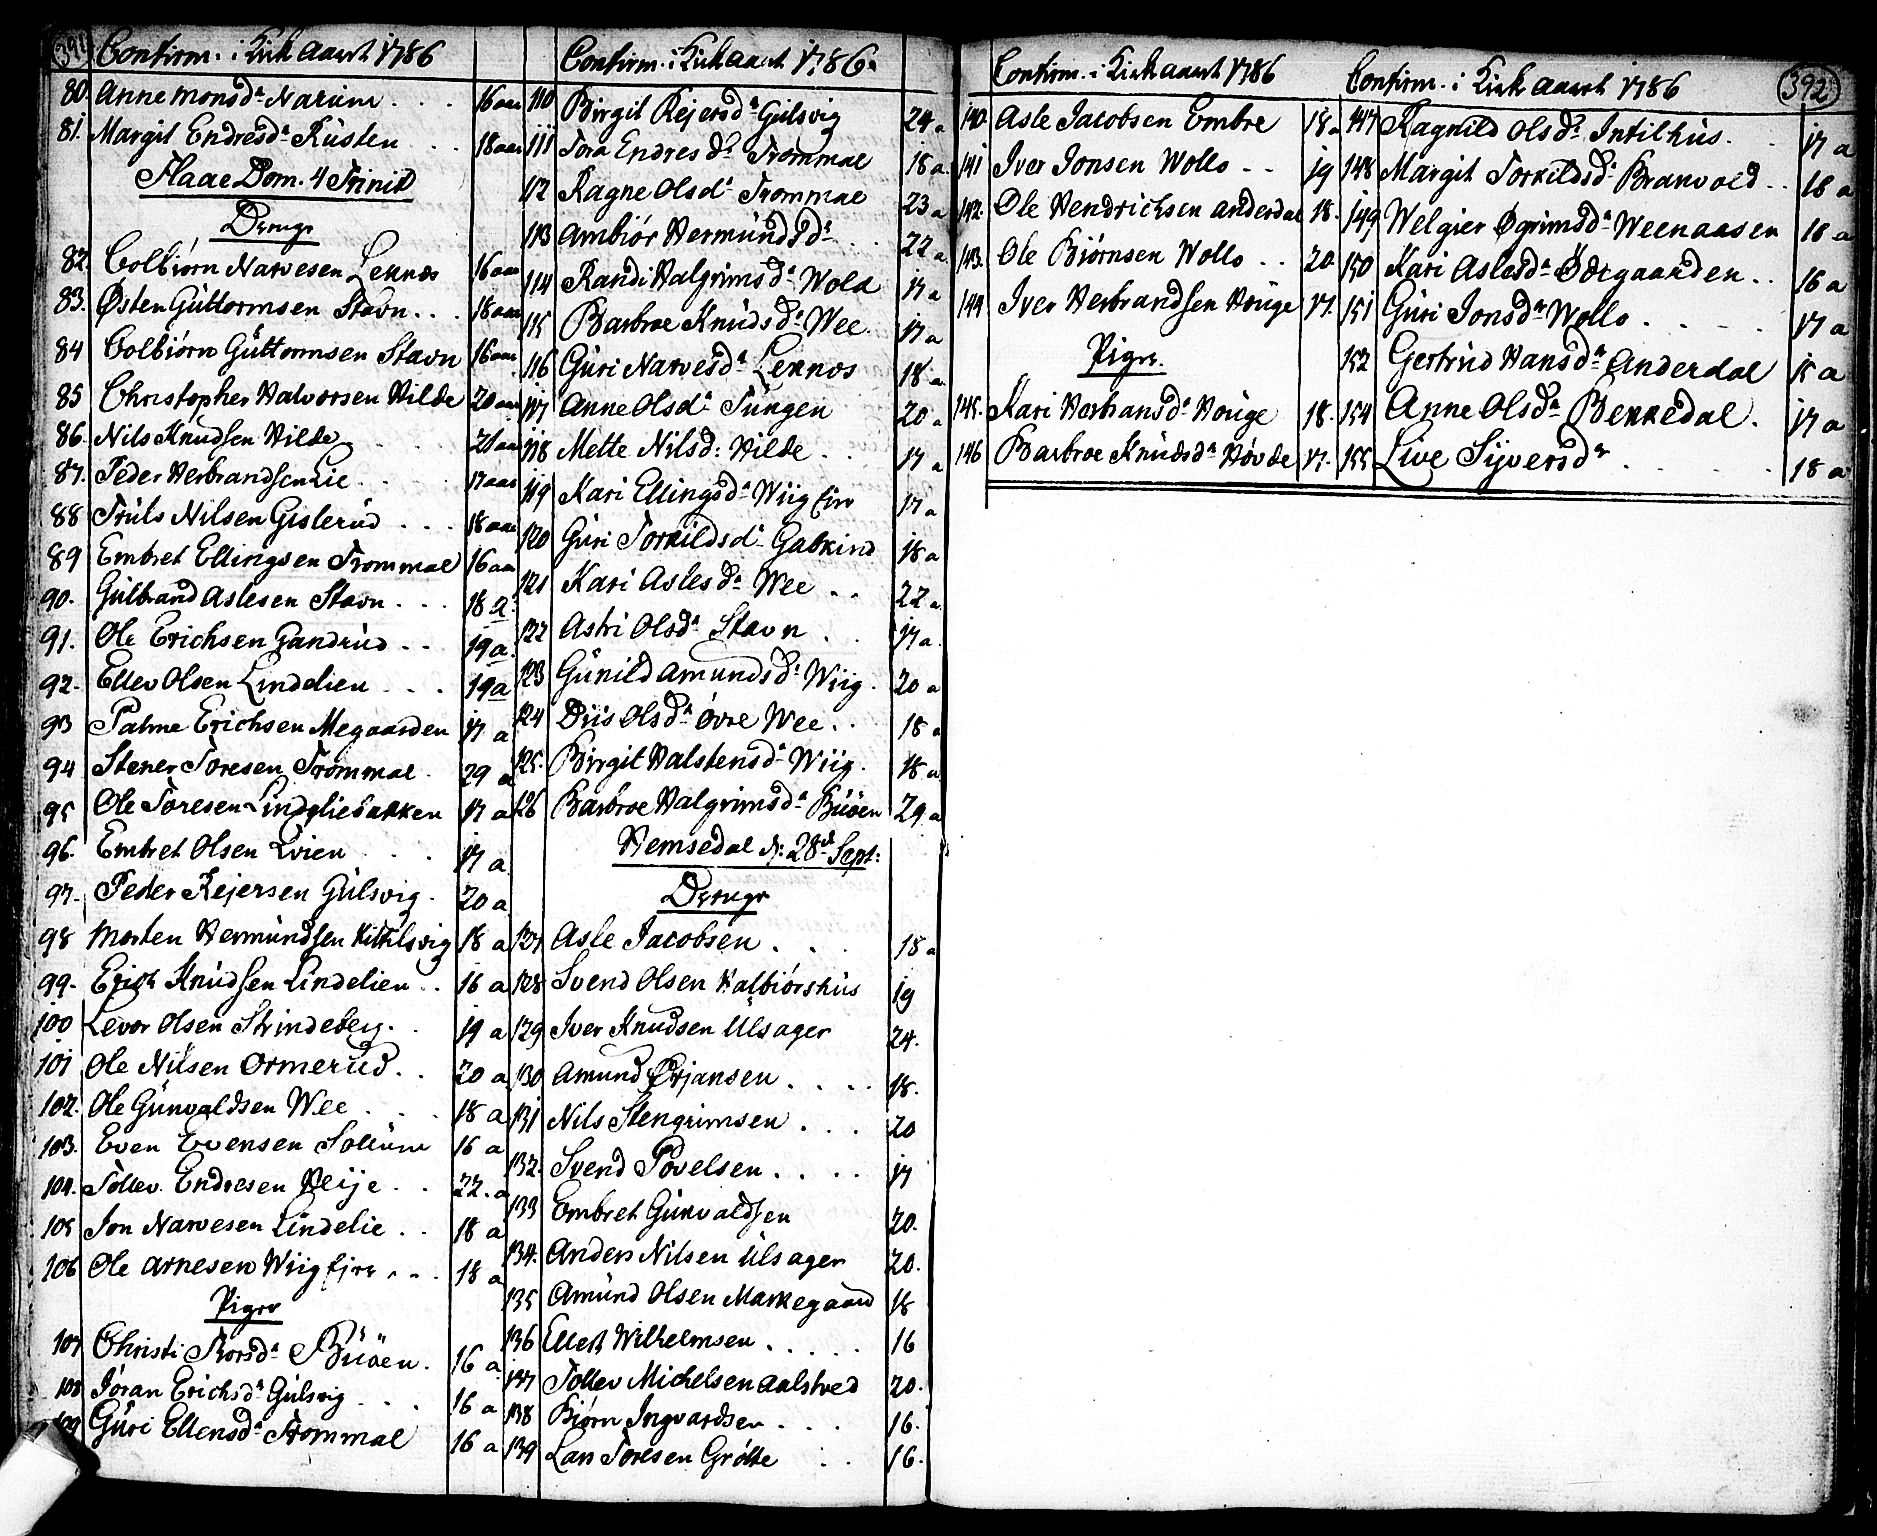 391
Confirm. i Kirk aaret 1786
80. Anne Monsdr Narum . . . 16 aar
81. Margit Endresdr Rusten . . . 18 aar
Flaae Dom. 4 Trinit
Drenge
82. Colbiørn Narvesen Leknes 16 aar
83. Østen Guttormsen Stavn . . . 18 aar
84 Colbiørn Guttormsen Stavn 16 aar
85 Christopher Halvorsen Hilde 20 aar
86. Nils Knudsen Hilde 21 aar
87. Peder Herbrandsen Lie . . . 17 aar
88 Truls Nilsen Gislerud . . . 18 aar
89 Embret Ellingsen Trommal 16 aar
90. Gulbrand Aslesen Stavn . . . 18 a.
91. Ole Erichsen Gandrud . . 19 a.
92. Ellev Olsen Lindelien . . . 19 a
93 Palme Erichsen Megaarden 17 a
94 Stener Toresen Trommal . 29 a
95 Ole Toresen Lindeliebakken 17 a
96. Embret Olsen Lvien . . . 17 a
97. Peder Rejersen Gulsvig . 20 a
98 Morten Hermundsen Kittilsvig 18 a
99. Erich Knudsen Lindelien . . 16 a
100 Levor Olsen Strindeberg . . 19 a
101 Ole Nilsen Ormerud . . 20 a
102. Ole Gunvaldsen Wee . . . 18 a
103. Even Evensen Solium 16 a
104. Tollev Endresen Heije . . 22. a
105 Jon Narvesen Lindelie . . 18 a
106 Ole Arnesen Wiigfjer . . . 18 a
Piger
107 Christi Torsdr Buøen . 16 a
108 Jøran Erichsdr Gulsvig . . . 16 a
109 Guri Ellensdr Trommal 16 a
Confirm. i Kirk aaret 1786.
110 Birgit Rejersdr Gulsvig 24 a
111 Tora Endresdr Trommal 18 a.
112 Ragne Olsdr Trommal 23 a
113 Ambiør Hermundsdr . . . 22 a
114 Randi Halgrimsdr Wold 17 a
115 Barbroe Knudsdr Wee . 17 a
116 Guri Narvesdr Leknes 18 a
117 Anne Olsdr Tungen 20 a
118 Mette Nilsd: Hilde . . 17 a
119 Kari Ellingsdr Wiigfier 17 a
120 Guri Torkildsdr Gabkind 18 a
121 Kari Aslesdr Wee . . 22 a.
122 Astri Olsdr Stavn . . 17 a.
123 Gunild Amundsdr Wiig . 20 a
124 Diis Olsdr Øvre Wee . . 18 a
125. Birgit Halstensdr Wiig . 18 a
126 Barbroe Halgrimsdr Buøen 29 a
Hemsedal d: 28de Sept:
Drenge
127 Asle Jacobsen . . . 18 a
128 Svend Olsen Kalbiørshus 19
129 Iver Knudsen Ulsager 24.
130 Amund Ørjansen . . . . 18.
131 Nils Stengrimsen . . . 20
132. Svend Povelsen . . . . 17
133 Embret Gunvaldsen 20.
134. Anders Nilsen Ulsager 20.
135 Amund Olsen Markegaard 18
136 Ellert Wilhelmsen . . . . . 16
137 Tollev Michelsen Aalstved 20.
138 Biørn Ingvardsen . . . . 16.
139 Lars Toresen Grøtte . . 16.
Confirm. i Kirk aaret 1786
140. Asle Jacobsen Embre 18 a
141 Iver Jonsen Wollo . . 19
142. Ole Hendrichsen Anderdal 18.
143. Ole Biørnsen Wollo . . 20
144 Iver Herbrandsen Houge 17.
Piger.
145. Kari Herbransdr Houge 18.
146 Barbroe Knudsdr Høvde 17.
Confirm. i Kirk aaret 1786
392
147 Ragnild Olsdr Intilhus . . 17 a
148 Margit Torkildsdr Branvold . . 18 a
149 Welgier Øgrimsdr Weenaasen 18 a
150 Kari Aslesdr Ødegaarden . . 16 a
151 Guri Jonsdr Wollo . . . . 17 a
152 Gertrud Hansdr Anderdal 15 a
154 Anne Olsdr Bekkedal . 17 a
155 Live Sijversdr . . . . 18 a